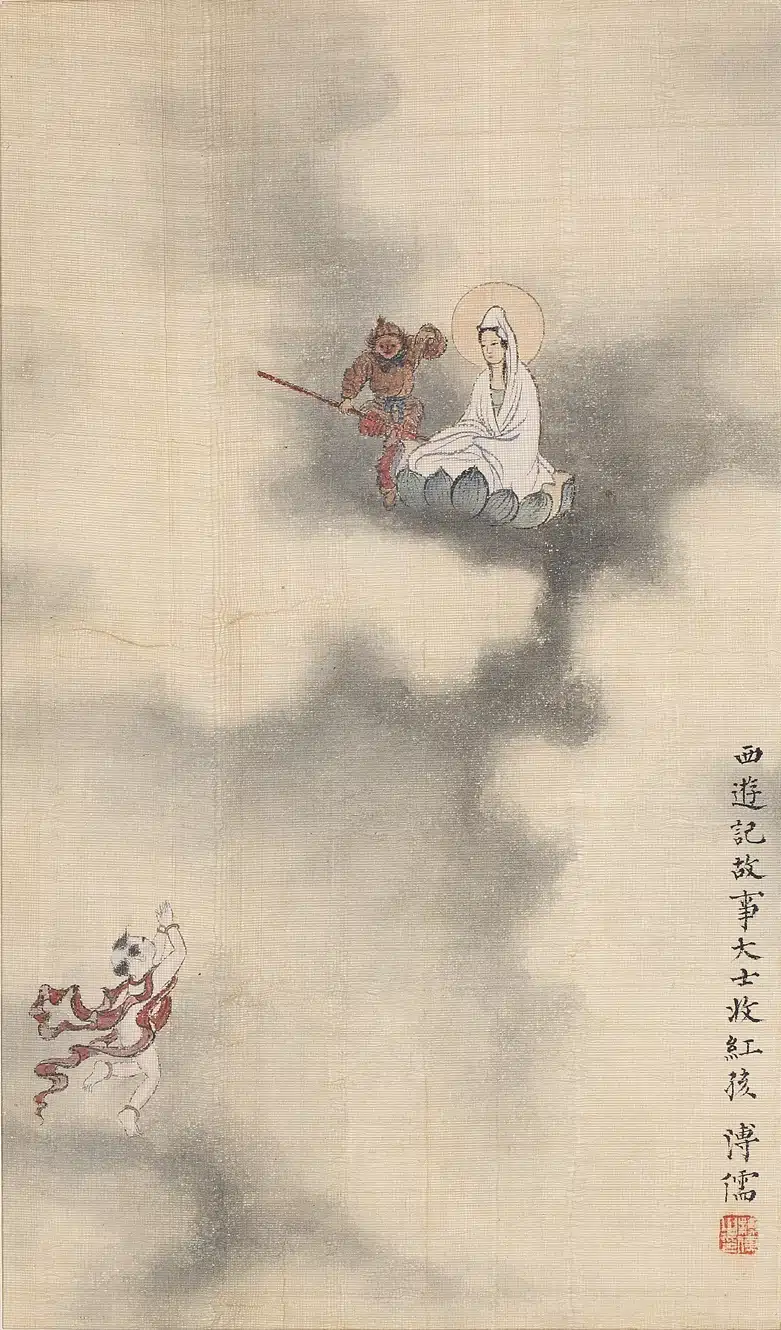 西遊記故事大士收紅孩 溥儒